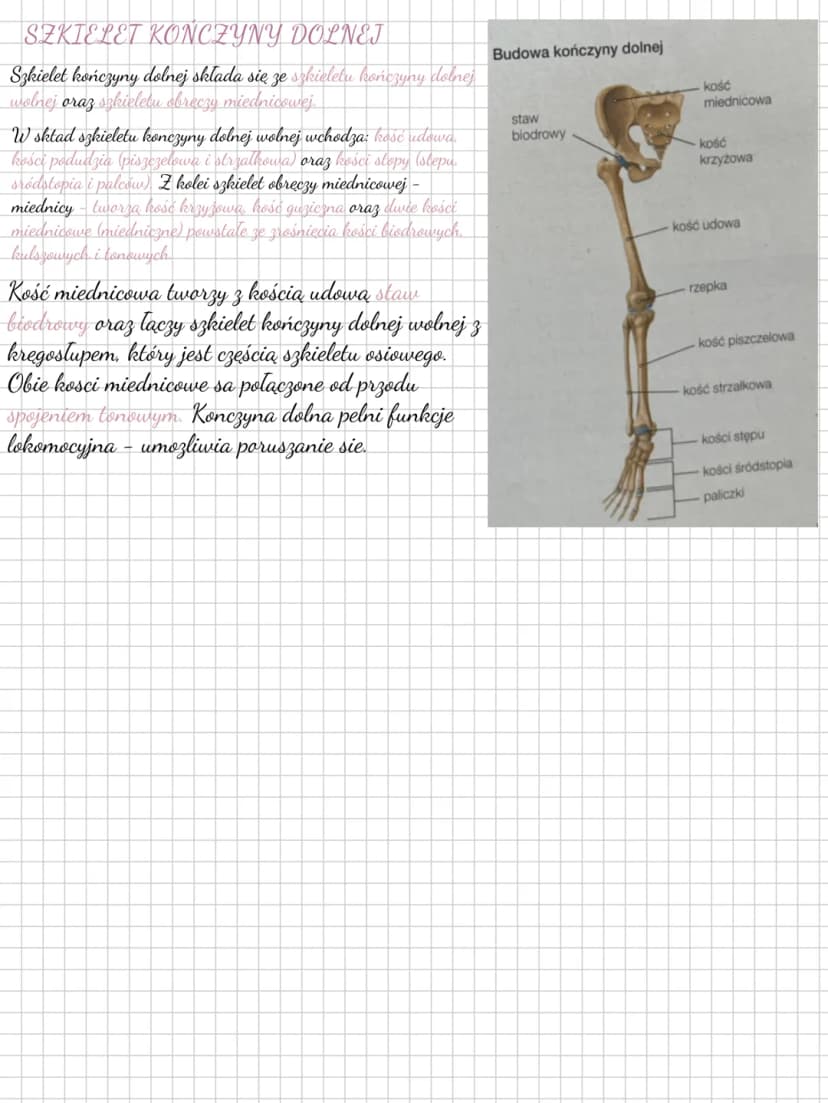 SZKIELET KOŃCZYNY DOLNEJ
Szkielet kończyny dolnej składa się ze szkieletu kończyny dolnej
wolnej oraz szkieletu obręczy miednicowej.
W skład szkieletu konczyny dolnej wolnej wchodza: kość udowa,
kości podudzia (piszczelowa i strzałkowa) oraz kości stopy (stępu,
śródstopia i palców). Z kolei szkielet obręczy miednicowej -
miednicy - tworzą kość krzyżowa, kość guziczna oraz dwie kości
miednicowe (miedniczne) powstałe ze zrośnięcia kości biodrowych,
kulszowych i łonowych.
Kość miednicowa tworzy z kością udową staw
biodrowy oraz łączy szkielet kończyny dolnej wolnej z
kręgosłupem, który jest częścią szkieletu osiowego.
Obie kosci miednicowe sa połączone od przodu
spojeniem łonowym. Konczyna dolna pelni funkcje
lokomocyjna - umozliwia poruszanie sie.
Budowa kończyny dolnej
kość
miednicowa
staw
biodrowy
kość
krzyżowa
kość udowa
rzepka
kość piszczelowa
kość strzałkowa
kości stępu
kości śródstopia
paliczki